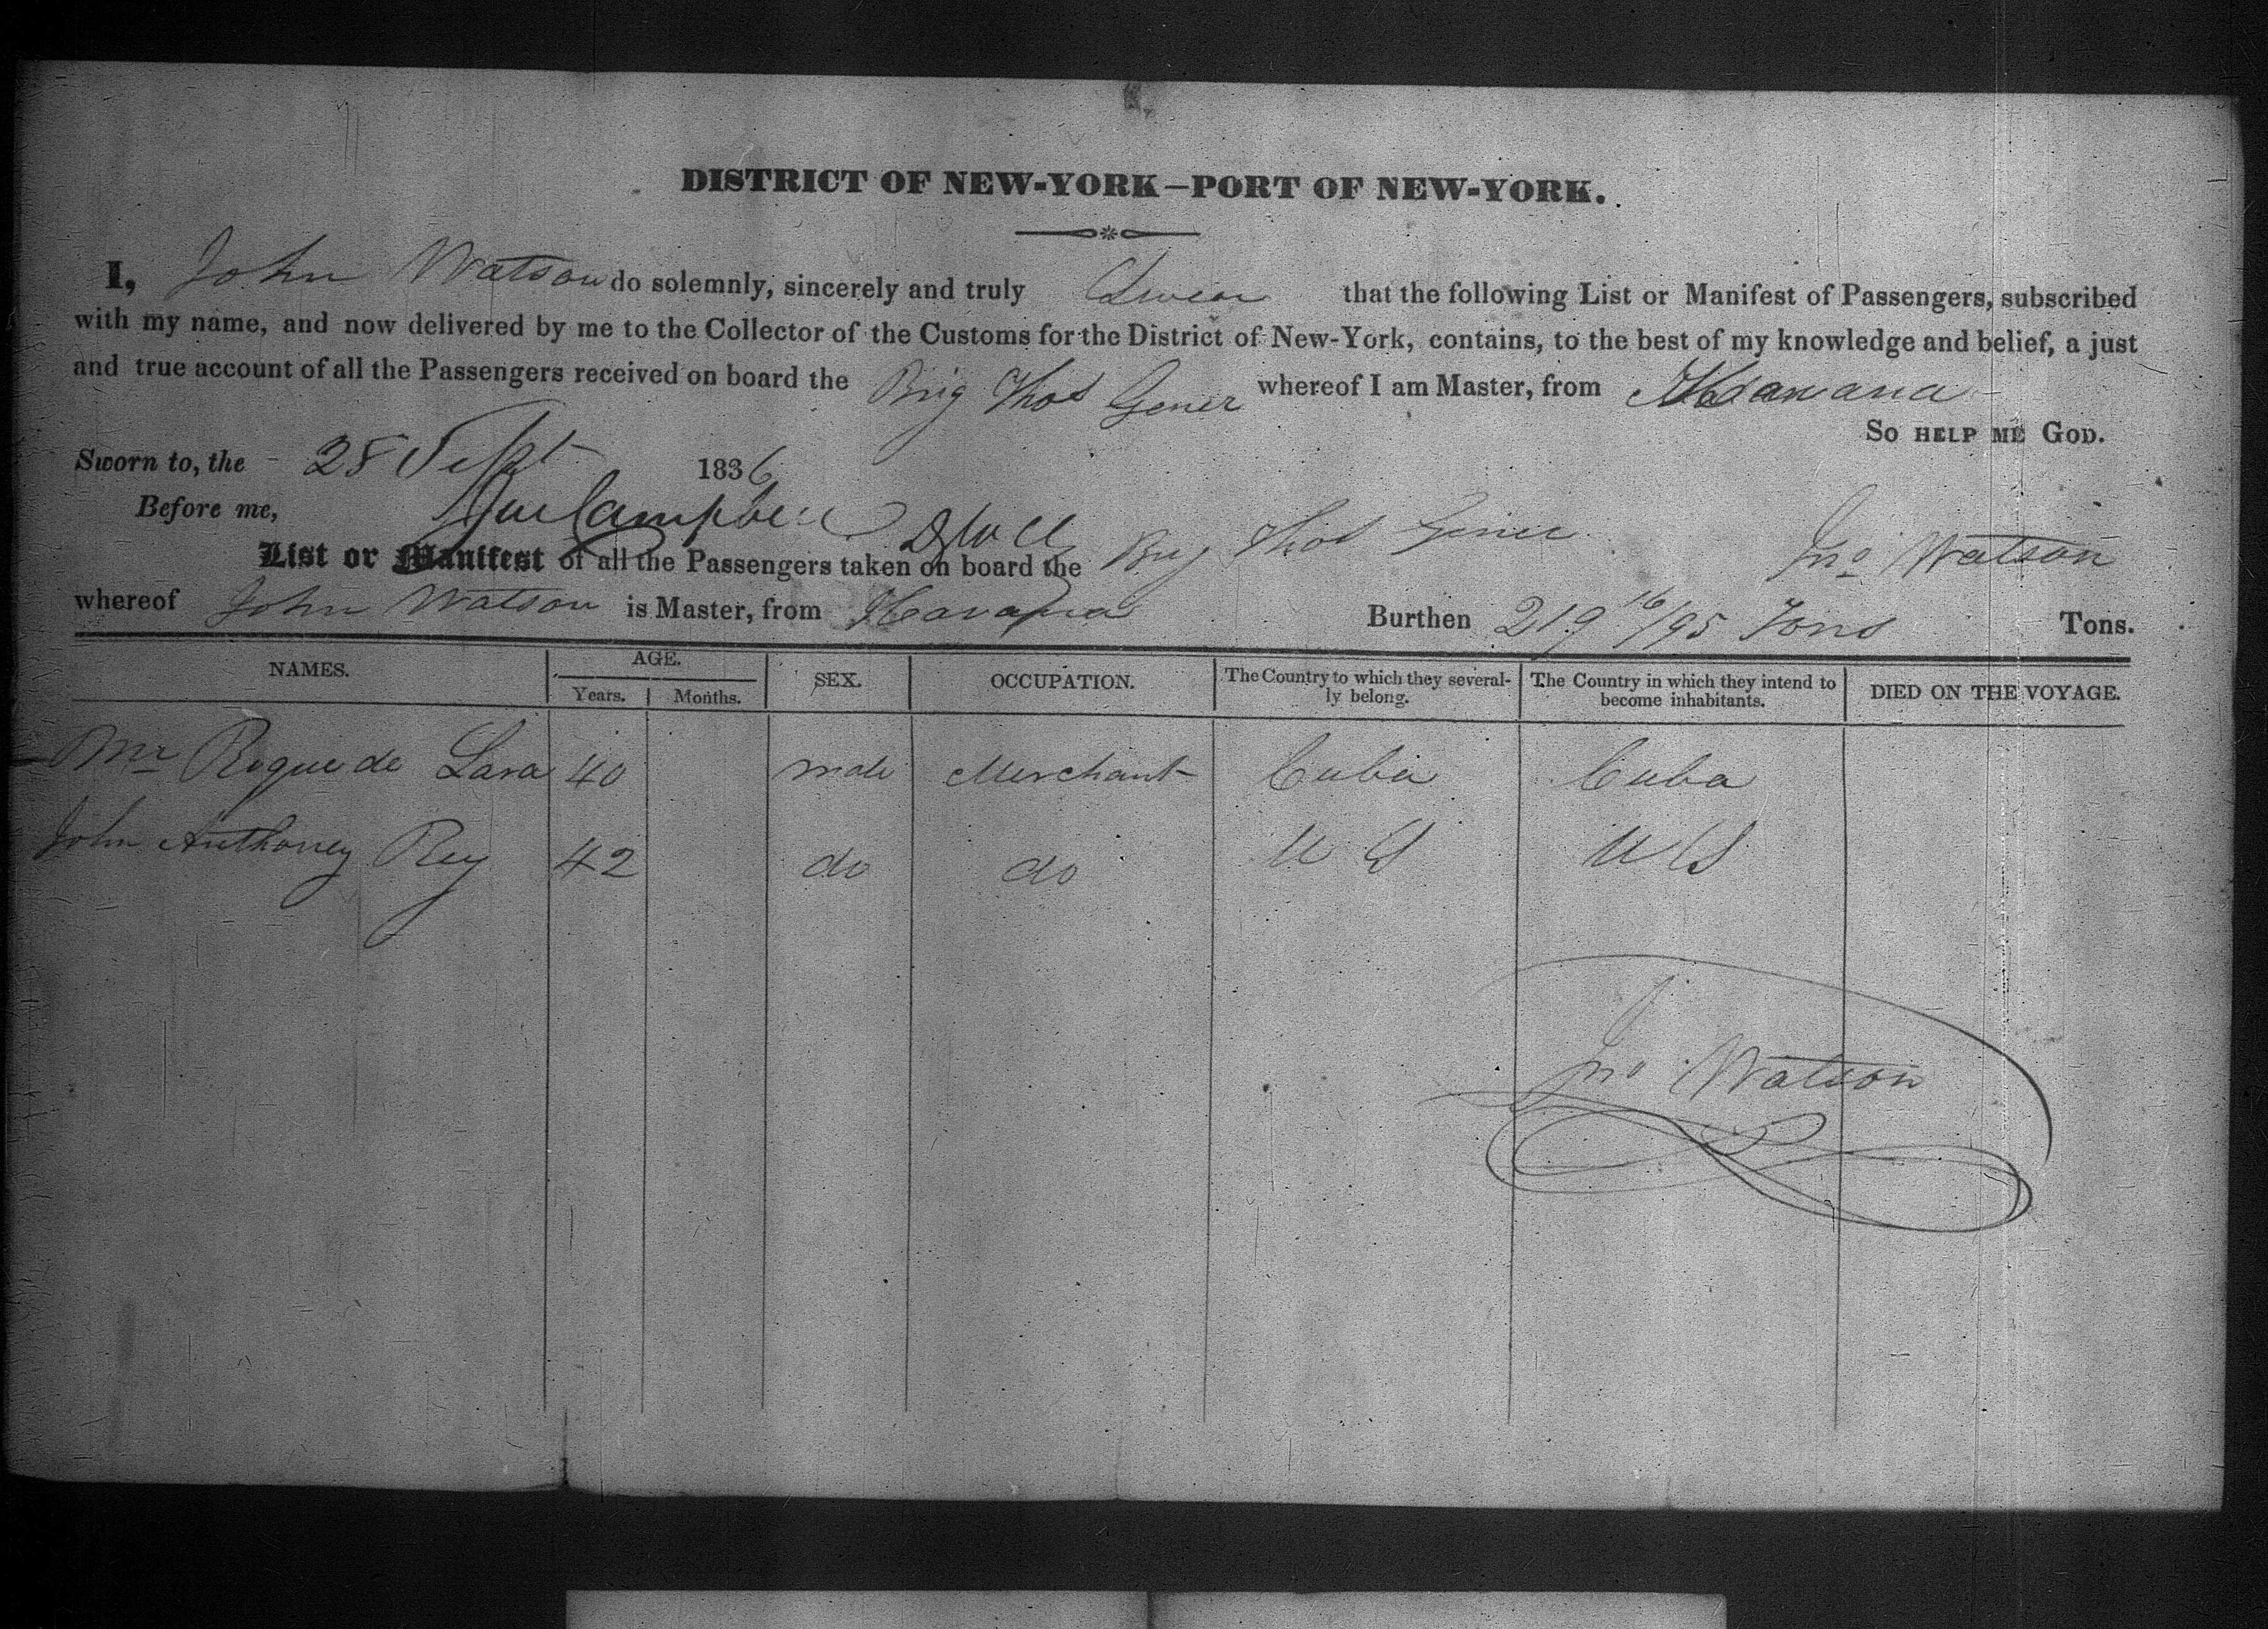 DISTRICT OF NEW-YORK—PORT OF NEW-YORK.
I, John Watson do solemnly, sincerely and truly Swear that the following List or Manifest of Passengers, subscribed
with my name, and now delivered by me to the Collector of the Customs for the District of New-York, contains, to the best of my knowledge and belief, a just
and true account of all the Passengers received on board the Brig Thos Gener whereof I am Master, from Havana
So HELP ME GOD.
Sworn to, the 28 Sept 1836
Before me, Campbell
Jno Watson
List or Manifest of all the Passengers taken on board the Brig Thos Gener
whereof John Watson is Master, from Havana Burthen 219 16/95 Tons Tons.
NAMES. AGE. SEX. OCCUPATION. The Country to which they several- The Country in which they intend to DIED ON THE VOYAGE.
Years. Months. ly belong. become inhabitants.
Mr Roque de Lara 40 male Merchant Cuba Cuba
John Anthoney Rey 42 do do U S U S
Jno Watson